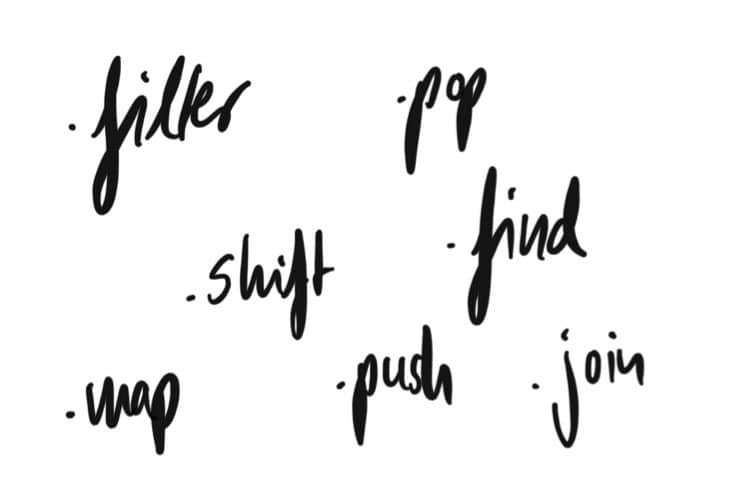 .filter
.pop
.find
.shift
.push
.join
.map